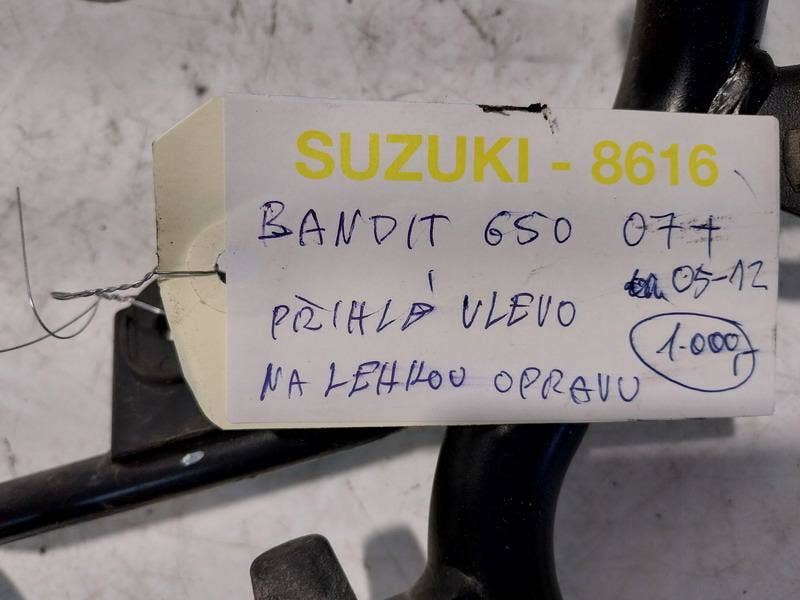 SUZUKI - 8616
BANDIT 650 07+
05-12
PŘIHLÁ VLEVO
1.000,-
NA LEHKOU OPRAVU